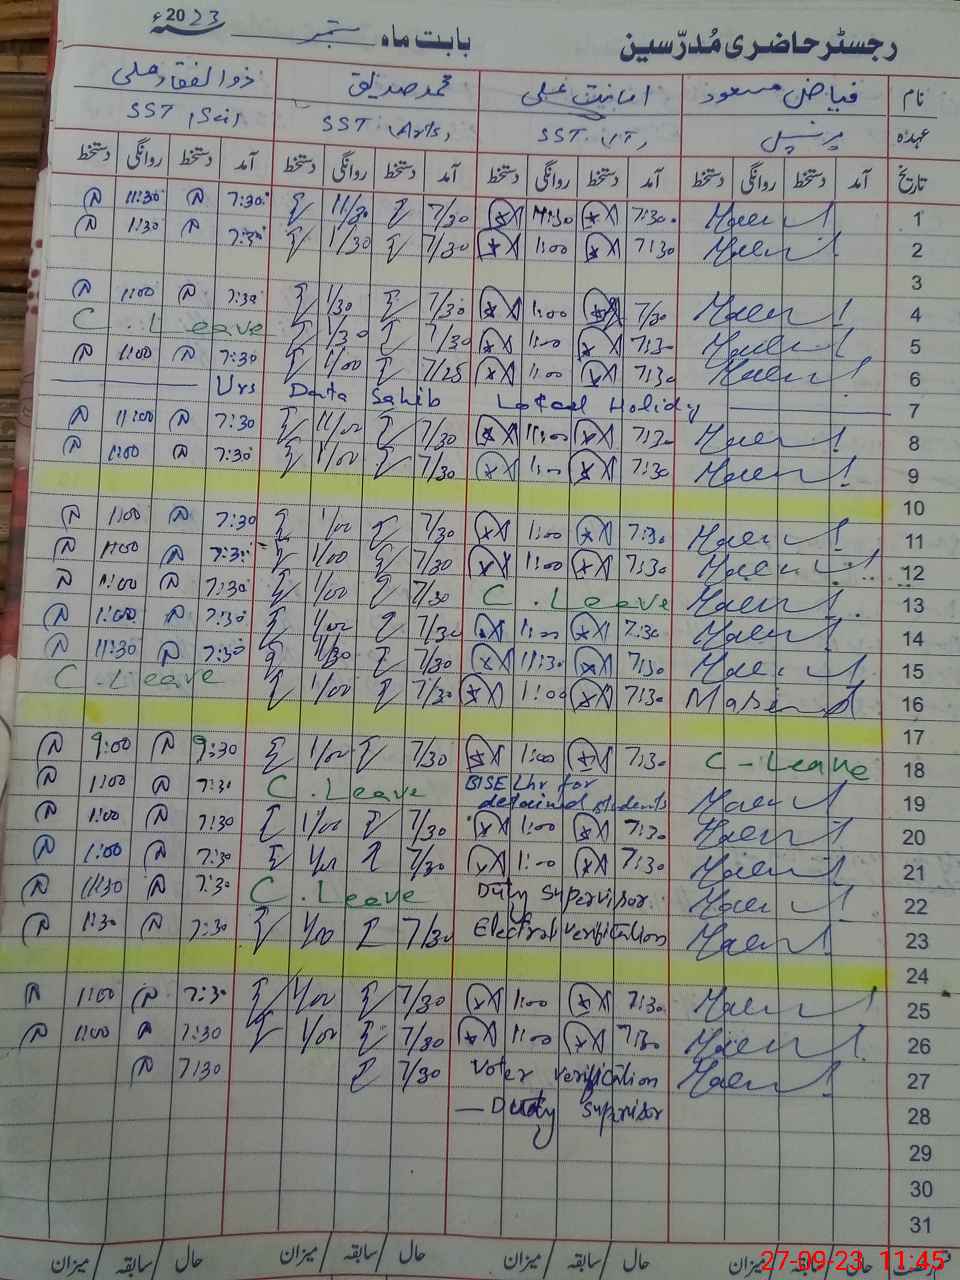 رجسٹر حاضری مُدرّسین بابت ماہ ستمبر 2023ء
نام فیاض مسعود امانت علی محمد صدیق ذوالفقار علی
عہدہ پرنسپل SST (IT) SST (Arts) SST (Sci)
تاریخ آمد دستخط روانگی دستخط آمد دستخط روانگی دستخط آمد دستخط روانگی دستخط آمد دستخط روانگی دستخط
1 7:30 11:30 7/30 11/30 7:30 11:30
2 7:30 1:00 7/30 1/30 7:30 1:30
3
4 7/30 1:00 7/30 1/30 7:30 1:00
5 7:30 1:00 7/30 1/30 C. Leave
6 7:30 1:00 7/25 1/00 7:30 1:00
7 Urs Data Sahib Local Holidy
8 7:30 11:00 7/30 11/00 7:30 11:00
9 7:30 1:00 7/30 1/00 7:30 1:00
10
11 7:30 1:00 7/30 1/00 7:30 1:00
12 7:30 1:00 7/30 1/00 7:30 1:00
13 C. Leave 7/30 1/00 7:30 1:00
14 7:30 1:00 7/30 1/00 7:30 1:00
15 7:30 11:30 7/30 11/30 7:30 11:30
16 7:30 1:00 7/30 1/00 C. Leave
17
18 C - Leave 7:30 1:00 7/30 1/00 9:30 9:00
19 BISE Lhr for detained students C. Leave 7:30 1:00
20 7:30 1:00 7/30 1/00 7:30 1:00
21 7:30 1:00 7/30 1/00 7:30 1:00
22 Duty Supervisor C. Leave 7:30 11:30
23 Electral verification 7/30 1/00 7:30 1:30
24
25 7:30 1:00 7/30 1/00 7:30 1:00
26 7:30 1:00 7/30 1/00 7:30 1:00
27 Voter verification 7/30 7:30
28 — Duty Supervisor
29
30
31
حال سابقہ میزان حال سابقہ میزان حال سابقہ میزان حال سابقہ میزان
27-09-23 11:45